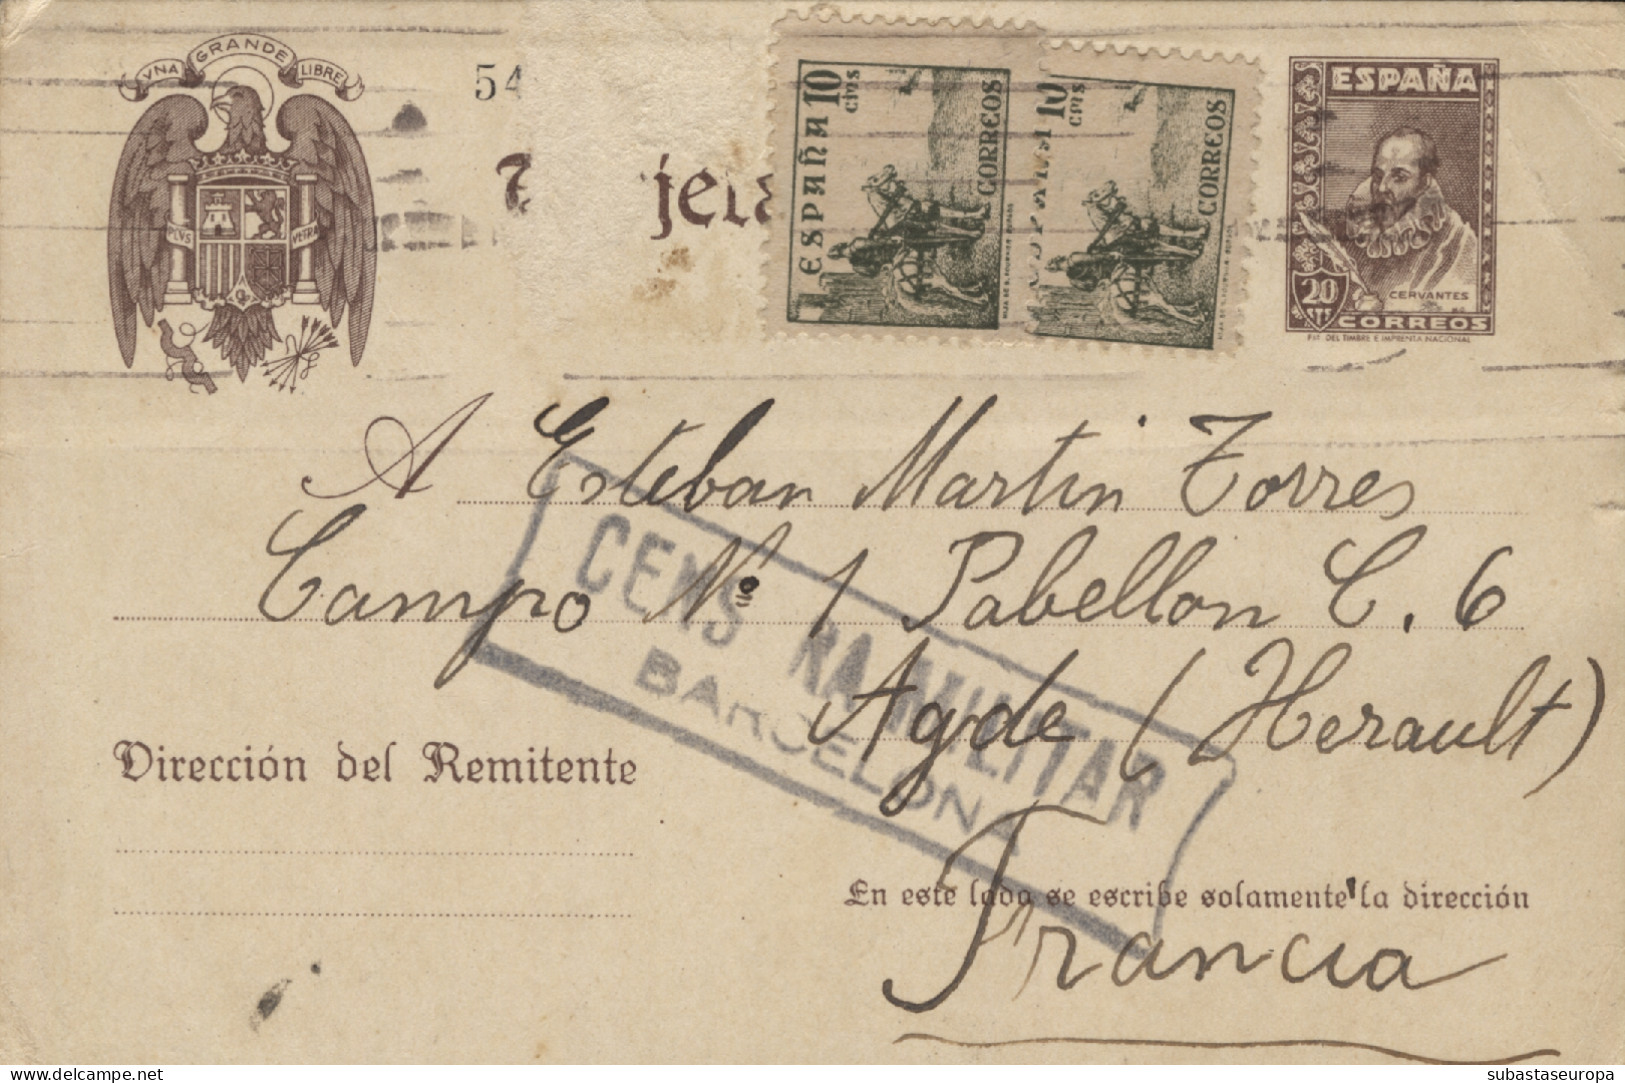 UNA GRANDE LIBRE
54
jeta
ESPAÑA 10 CTS
CORREOS
10 CTS
CORREOS
ESPAÑA
CERVANTES
20 CTS
CORREOS
FAB. DEL TIMBRE E IMPRENTA NACIONAL
PLVS VLTRA
A Esteban Martin Torres
Campo Nº 1 Pabellon C. 6
Agde (Herault)
Francia
CENSURA MILITAR
BARCELONA
Dirección del Remitente
En este lado se escribe solamente la dirección
subastaseuropa